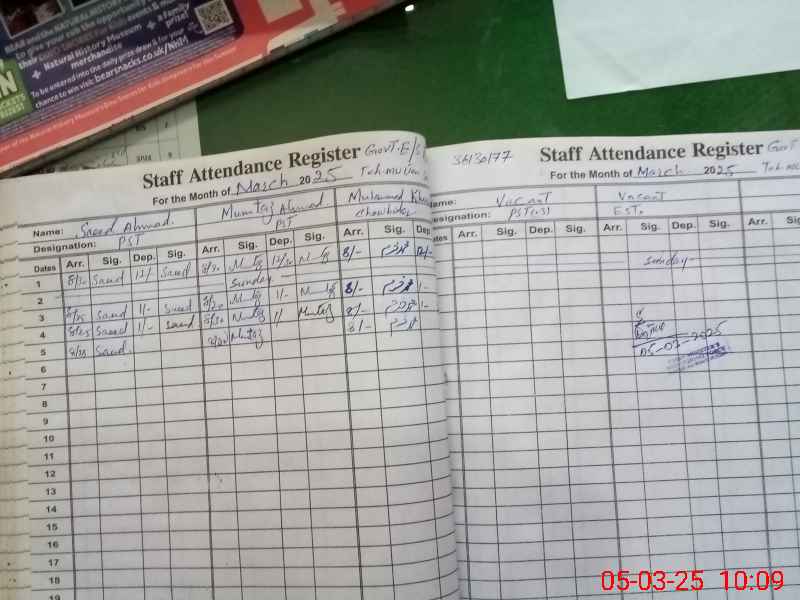 BEAR and the NATURAL HISTORY
+ Natural History Museum + a Family
merchandise
prize!
bearsnacks.co.uk/NHM
Staff Attendance Register GovT. E/S
For the Month of March 2025
Name: Saeed Ahmad. Mumtaz Ahmad Muhammad
Designation: PST PST chowkidar
Dates Arr. Sig. Dep. Sig. Arr. Sig. Dep. Sig. Arr. Sig. Dep.
1 8/30 Saeed 12/- Saeed 8/30 Mumtaz 12/30 Mumtaz 8/-
2 Sunday
3 8/25 Saeed 1/- Saeed 8/30 Mumtaz 1/- Mumtaz 8/- 1-
4 8/25 Saeed 1/- Saeed 8/30 Mumtaz 1/ Mumtaz 8/- 1-
5 8/25 Saeed. 8/30 Mumtaz 8/-
6
7
8
9
10
11
12
13
14
15
16
17
18
19
36130177 Staff Attendance Register GovT
For the Month of March 2025
Name: VacanT VacanT
Designation: PST EST.
Dates Arr. Sig. Dep. Sig. Arr. Sig. Dep. Sig. Arr. Sig.
Sunday
05-03-2025
05-03-25 10:09